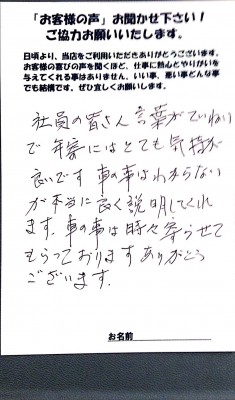 「お客様の声」お聞かせ下さい！
ご協力お願いいたします。
日頃より、当店をご利用いただきありがとうございます。
お客様の喜びの声を聞くほど、仕事に熱心とやりがいを
与えてくれる事はありません。いい事、悪い事どんな事
でも結構です。ぜひ宜しくお願いします。
社員の皆さん 言葉がていねい
で 年寄にはとても 気持が
良いです 車の事はわからない
が 本当に良く説明してくれ
ます。車の事は時々寄らせて
もらっております ありがとう
ございます.
お名前